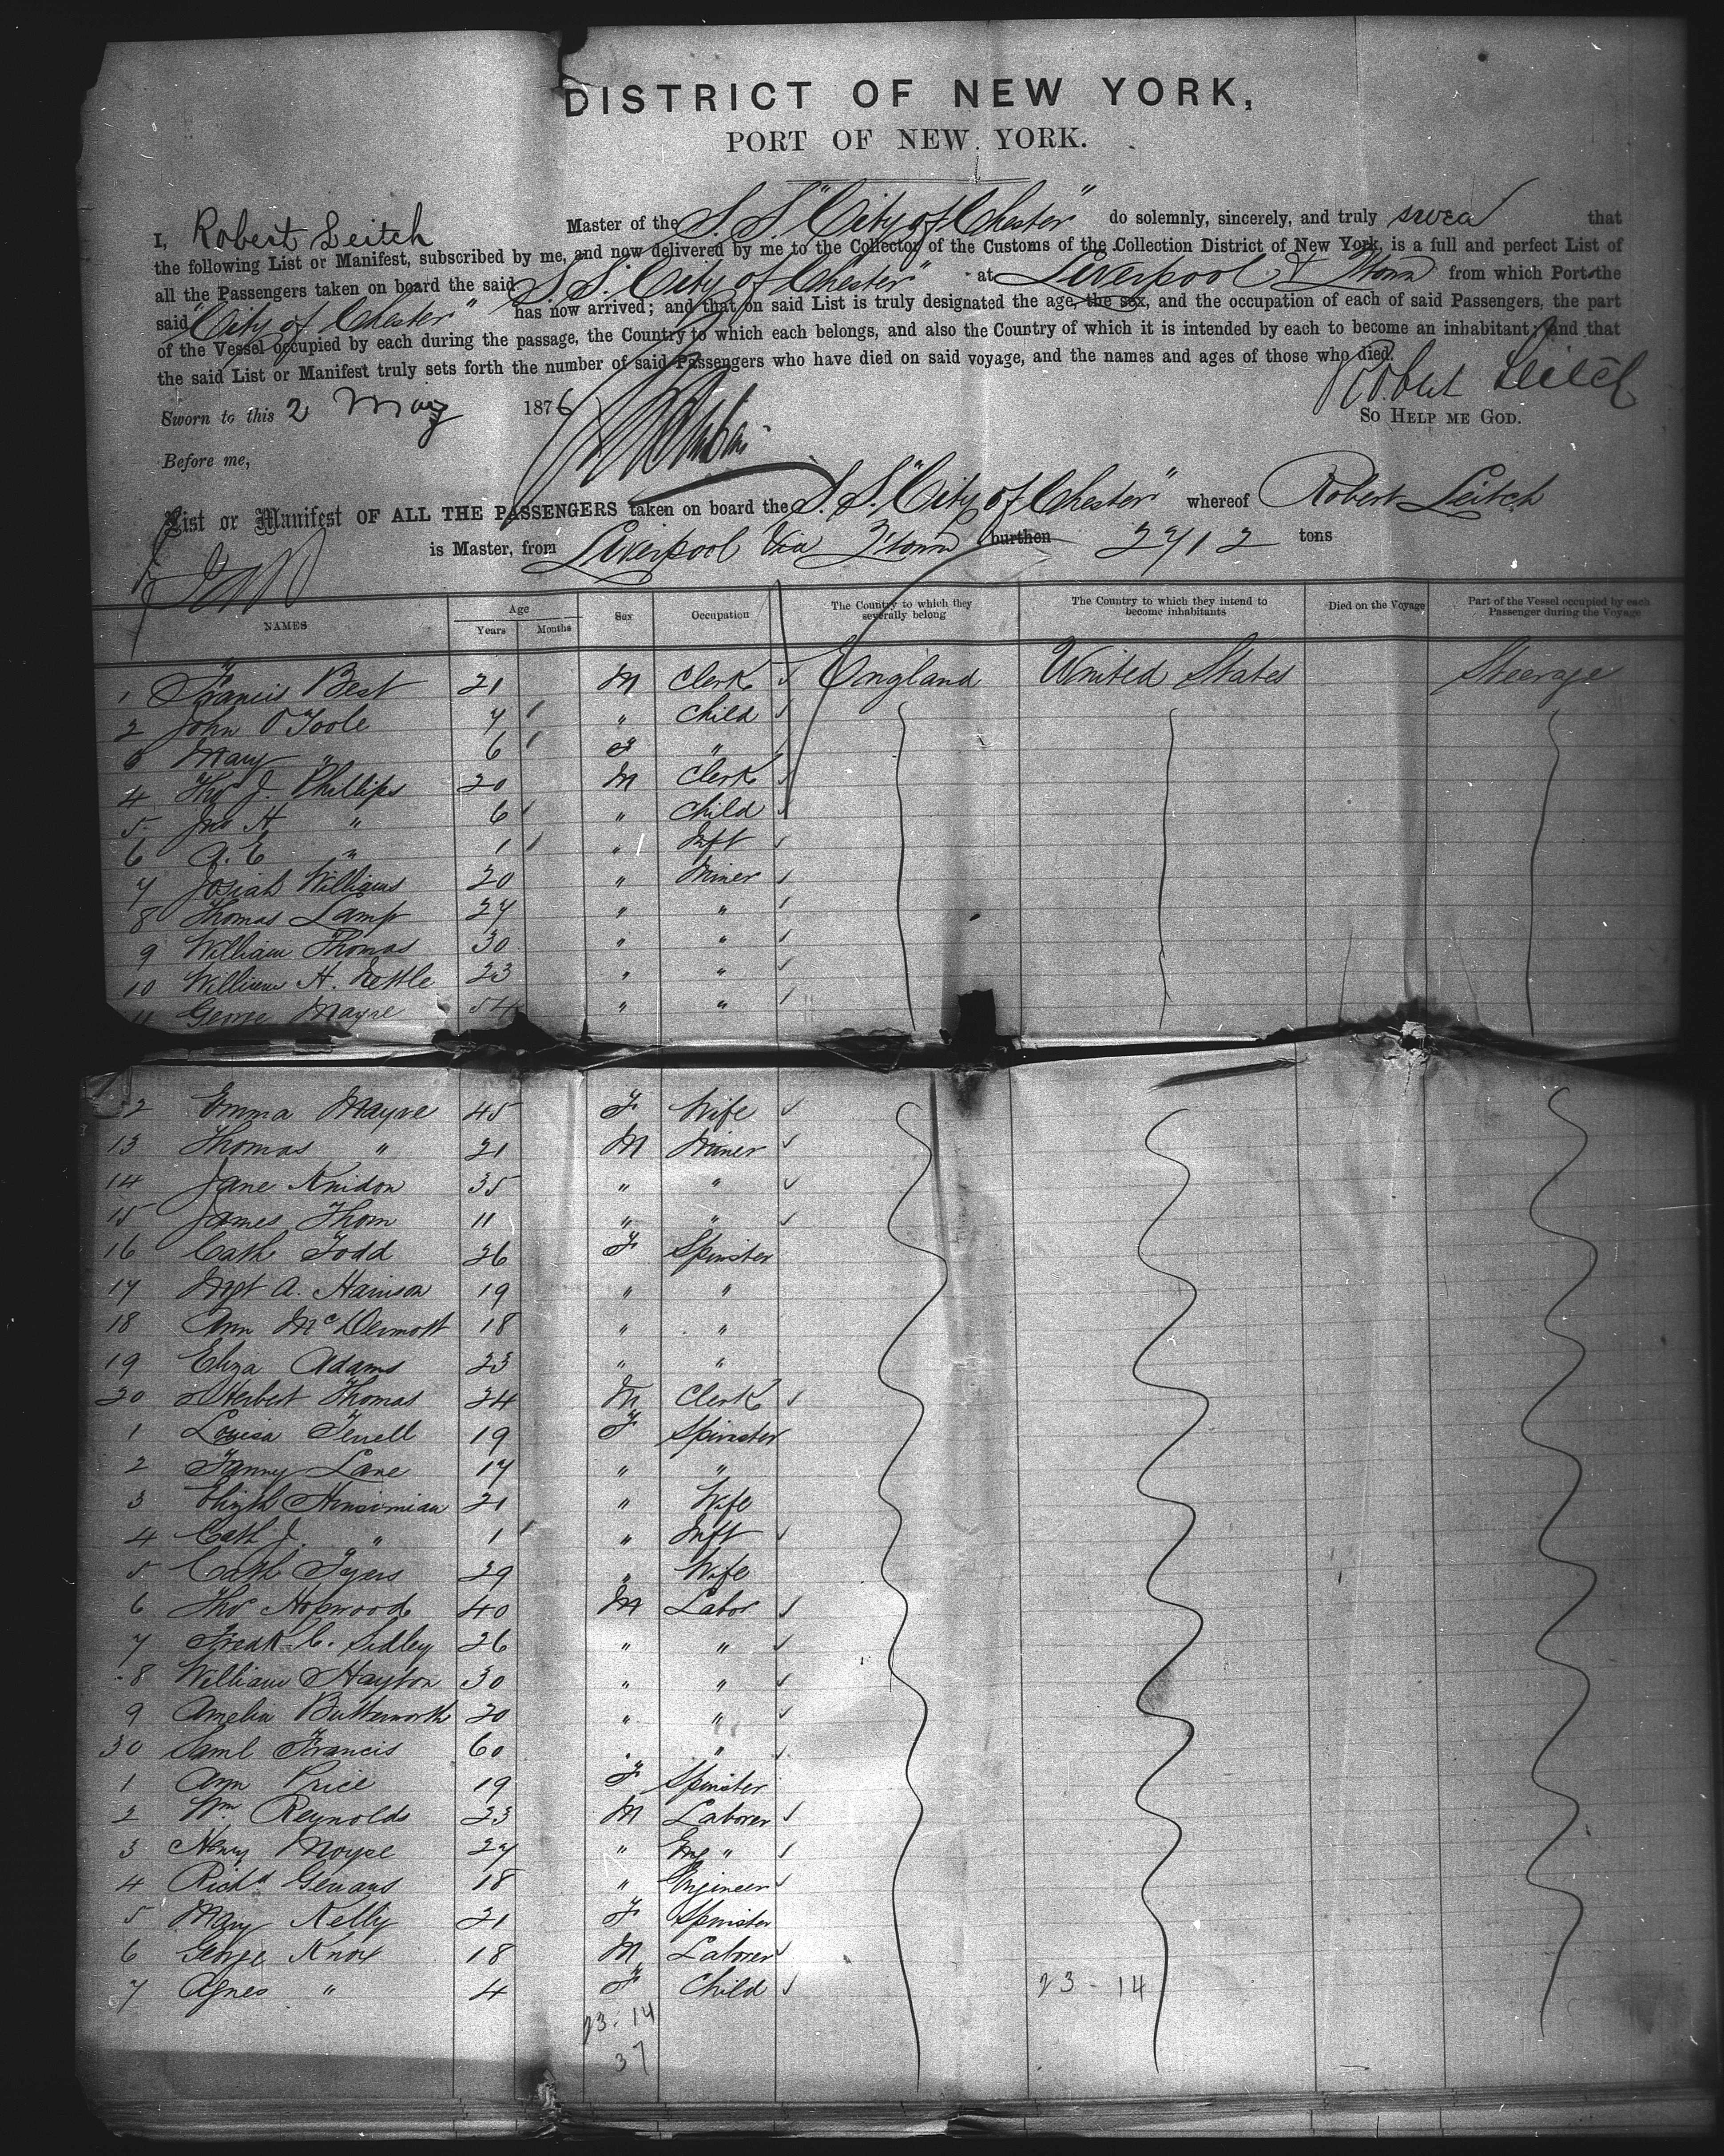 DISTRICT OF NEW YORK,
PORT OF NEW YORK.
I, Robert Leitch Master of the S.S. "City of Chester" do solemnly, sincerely, and truly swear that
the following List or Manifest, subscribed by me, and now delivered by me to the Collector of the Customs of the Collection District of New York, is a full and perfect List of
all the Passengers taken on board the said S.S. "City of Chester" at Liverpool & Qtown from which Port the
said "City of Chester" has now arrived; and that on said List is truly designated the age, the sex, and the occupation of each of said Passengers, the part
of the Vessel occupied by each during the passage, the Country to which each belongs, and also the Country of which it is intended by each to become an inhabitant; and that
the said List or Manifest truly sets forth the number of said Passengers who have died on said voyage, and the names and ages of those who died.
Robert Leitch
Sworn to this 2 May 1876 SO HELP ME GOD.
Before me,
List or Manifest OF ALL THE PASSENGERS taken on board the S.S. "City of Chester" whereof Robert Leitch
is Master, from Liverpool via Qtown burthen 2712 tons
NAMES Age Years Months Sex Occupation The Country to which they severally belong The Country to which they intend to become inhabitants Died on the Voyage Part of the Vessel occupied by each Passenger during the Voyage
1 Francis Best 21 M Clerk England United States Steerage
2 John O'Toole 7 " Child
3 Mary " 6 F "
4 Thos J. Phillips 20 M Clerk
5 Jno H " 6 " Child
6 A. E " 1 " Inft
7 Josiah Williams 20 " Miner
8 Thomas Lamp 27 " "
9 William Thomas 30 " "
10 William H. Kettle 23 " "
11 George Mayne 54 " "
2 Emma Mayne 45 F Wife
13 Thomas " 21 M Miner
14 Jane Knidon 35 " "
15 James Thom 11 " "
16 Cath Todd 26 F Spinster
17 Mgt A. Harrison 19 " "
18 Ann McDermott 18 " "
19 Eliza Adams 23 " "
20 Herbert Thomas 24 M Clerk
1 Louisa Terrell 19 F Spinster
2 Fanny Lane 17 " "
3 Elizth 21 " Wife
4 Cath J. " 1 " Inft
5 Cath Tyers 29 " Wife
6 Thos Hopwood 40 M Labor
7 Fredk C. Sidley 26 " "
8 William Hayton 30 " "
9 Amelia Butterworth 20 " "
30 Saml Francis 60 " "
1 Ann Price 19 F Spinster
2 Wm Reynolds 23 M Laborer
3 Henry Moyse 27 " Eng "
4 Richd Genaus 18 " Engineer
5 Mary Kelly 21 F Spinster
6 George Knox 18 M Laborer
7 Agnes " 4 F Child 23-14
23-14
37